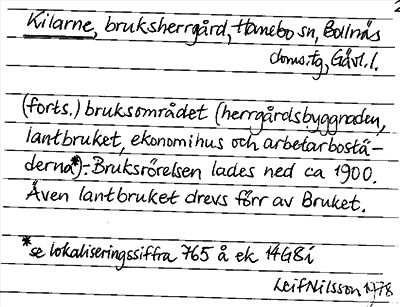 2
Kilarne, bruksherrgård, Hanebo sn, Bollnäs
doms. tg, Gävl. l.
(forts.) bruksområdet (herrgårdsbyggnaden,
lantbruket, ekonomihus och arbetarbostä-
derna*).- Bruksrörelsen lades ned ca 1900.
Även lantbruket drevs förr av Bruket.
*se lokaliseringssiffra 765 å ek 14G8i
Leif Nilsson 1978